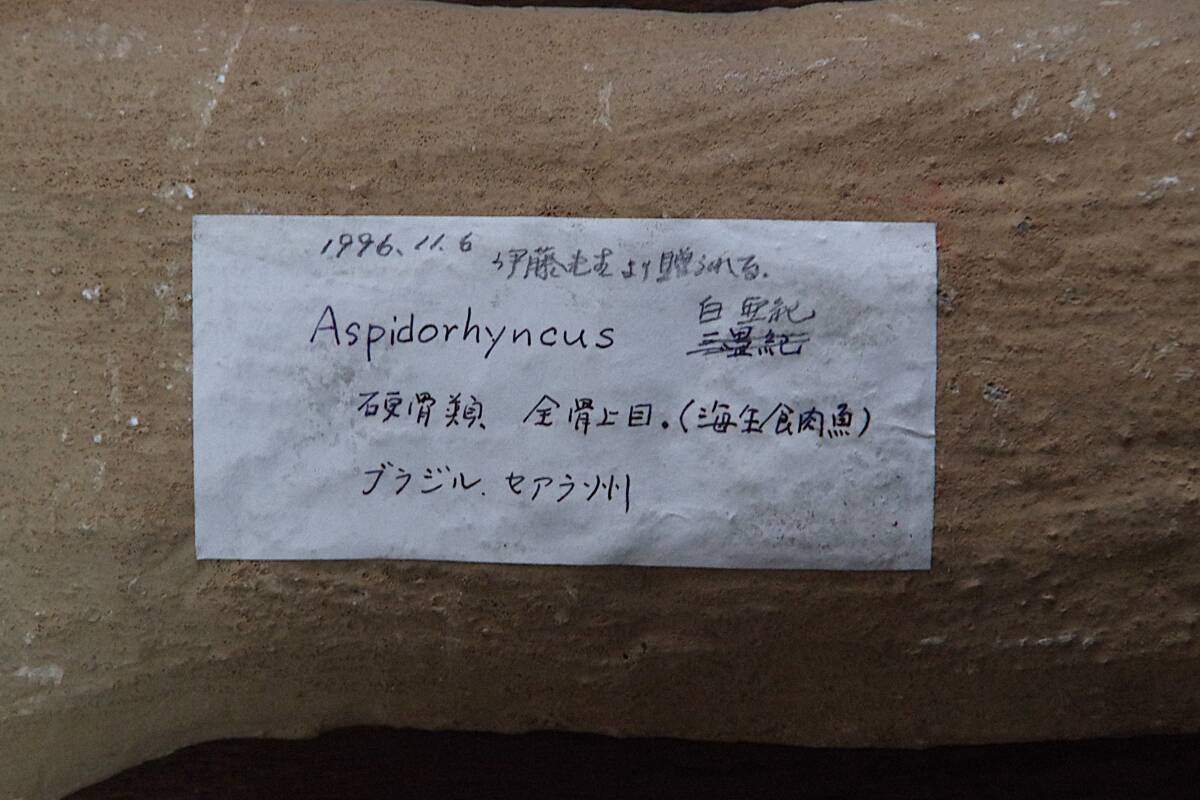 1996.11.6 伊藤先生より贈られる.
Aspidorhyncus 白亜紀
三畳紀
硬骨類 全骨上目.(海生食肉魚)
ブラジル.セアラ州